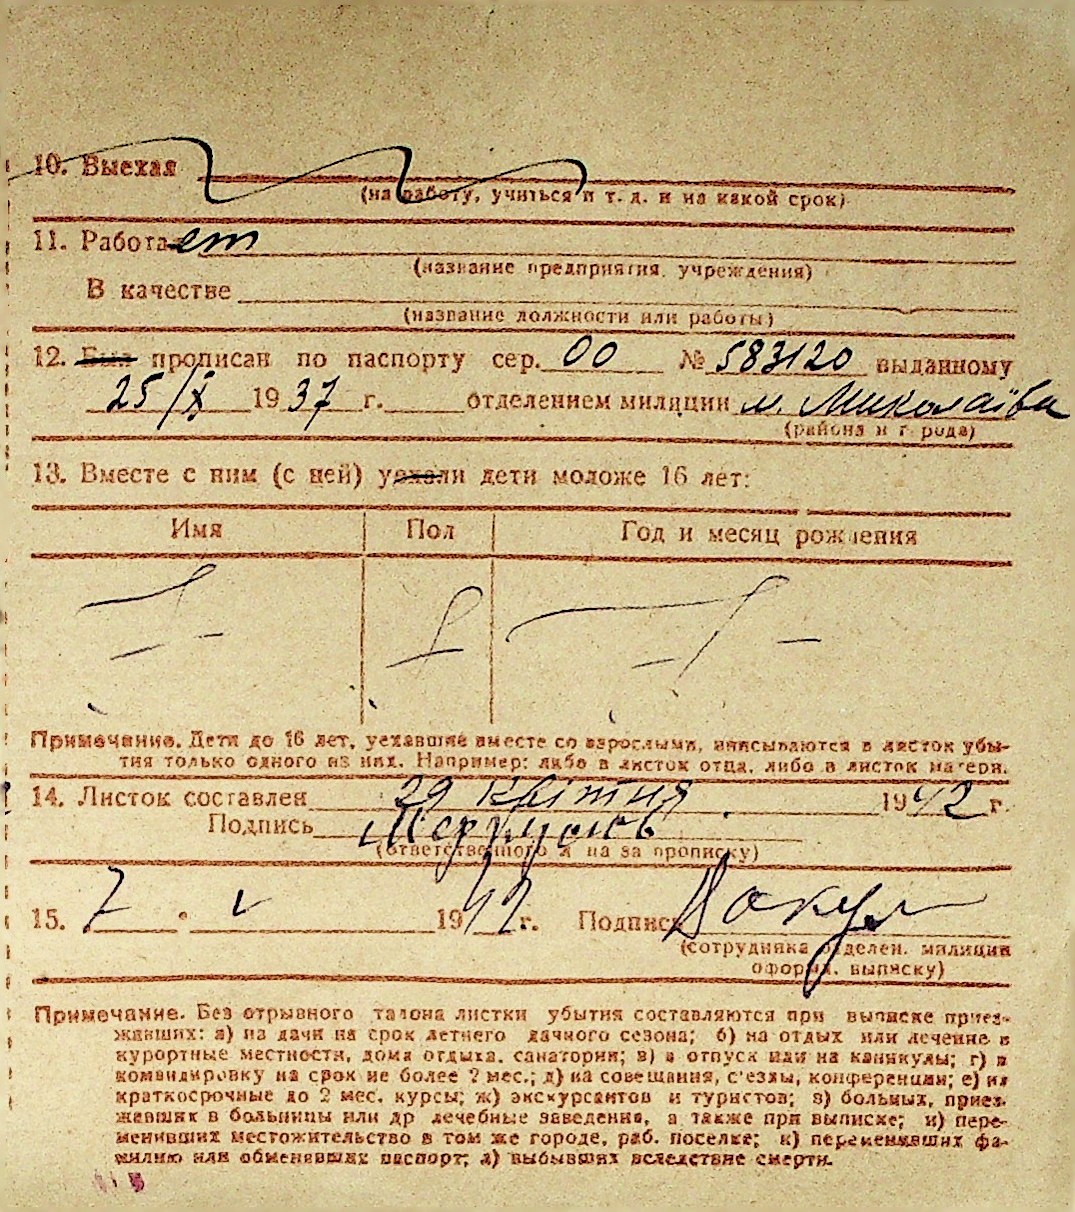 10. Выехал
(на работу, учиться и т. д. и на какой срок)
11. Работает
(название предприятия, учреждения)
В качестве
(название должности или работы)
12. Был прописан по паспорту сер. 00 № 583120 выданному
25/X 1937 г. отделением милиции м. Миколаїва
(района и города)
13. Вместе с ним (с ней) уехали дети моложе 16 лет:
Имя Пол Год и месяц рождения
Примечание. Дети до 16 лет, уехавшие вместе со взрослыми, вписываются в листок убы-
тия только одного из них. Например: либо в листок отца, либо в листок матери.
14. Листок составлен 29 квітня 1942 г.
Подпись
(ответственного за прописку)
15. 7 V 1942 г. Подпись
(сотрудника отделен. милиции
оформ. выписку)
Примечание. Без отрывного талона листки убытия составляются при выписке приез-
жавших: а) на дачи на срок летнего дачного сезона; б) на отдых или лечение в
курортные местности, дома отдыха, санатории; в) в отпуск или на каникулы; г) в
командировку на срок не более 2 мес.; д) на совещания, с'езды, конференции; е) на
краткосрочные до 2 мес. курсы; ж) экскурсантов и туристов; з) больных, приез-
жавших в больницы или др лечебные заведения, а также при выписке; и) пере-
менивших местожительство в том же городе, раб. поселке; к) переменивших фа-
милию или обменявших паспорт; л) выбывших вследствие смерти.